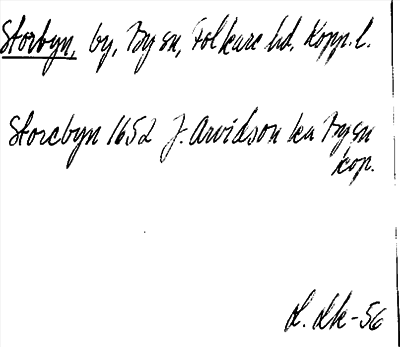 Storbyn, by, By sn, Folkare hd, Kopp. l.
Storebyn 1652 J. Arvidson ka By sn
kop.
L. Lk-56